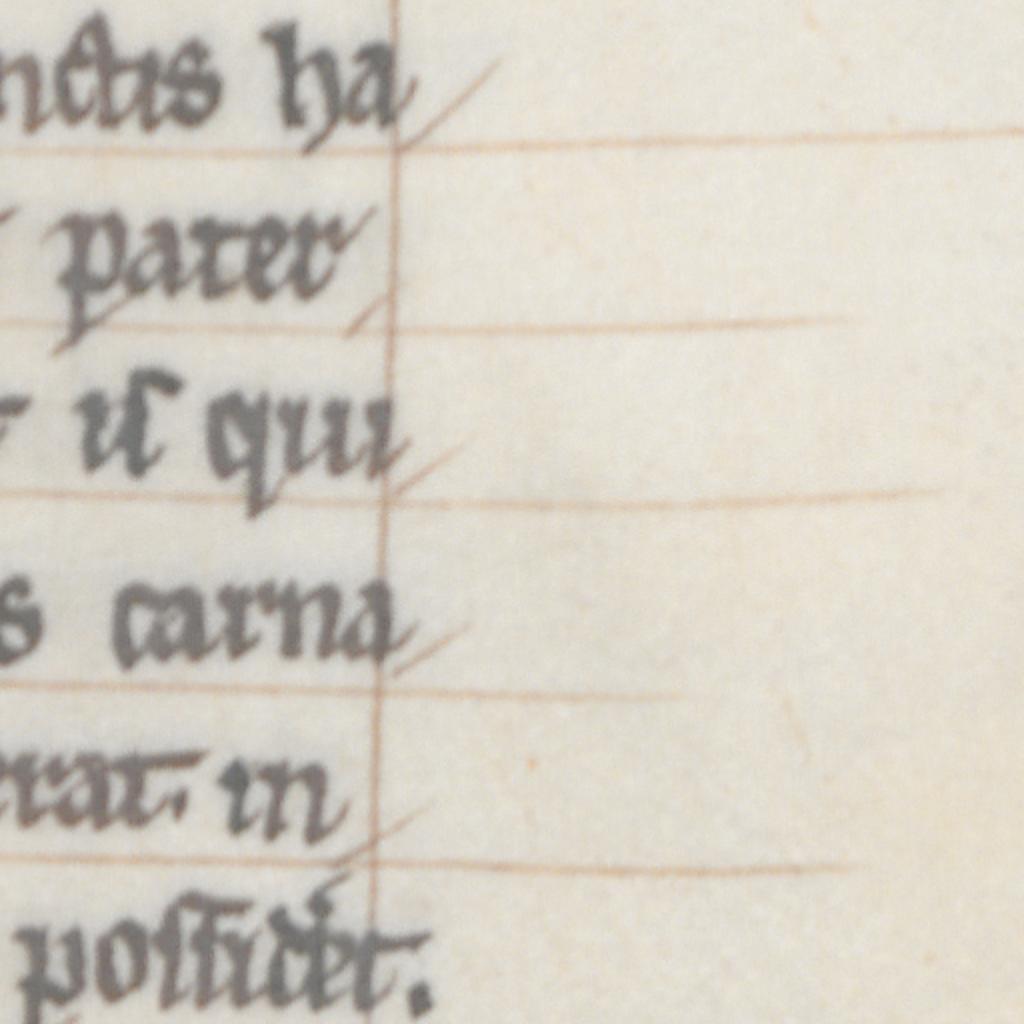 nctis ha
pater
uſ qui
s carna
rat. in
poſſidet.